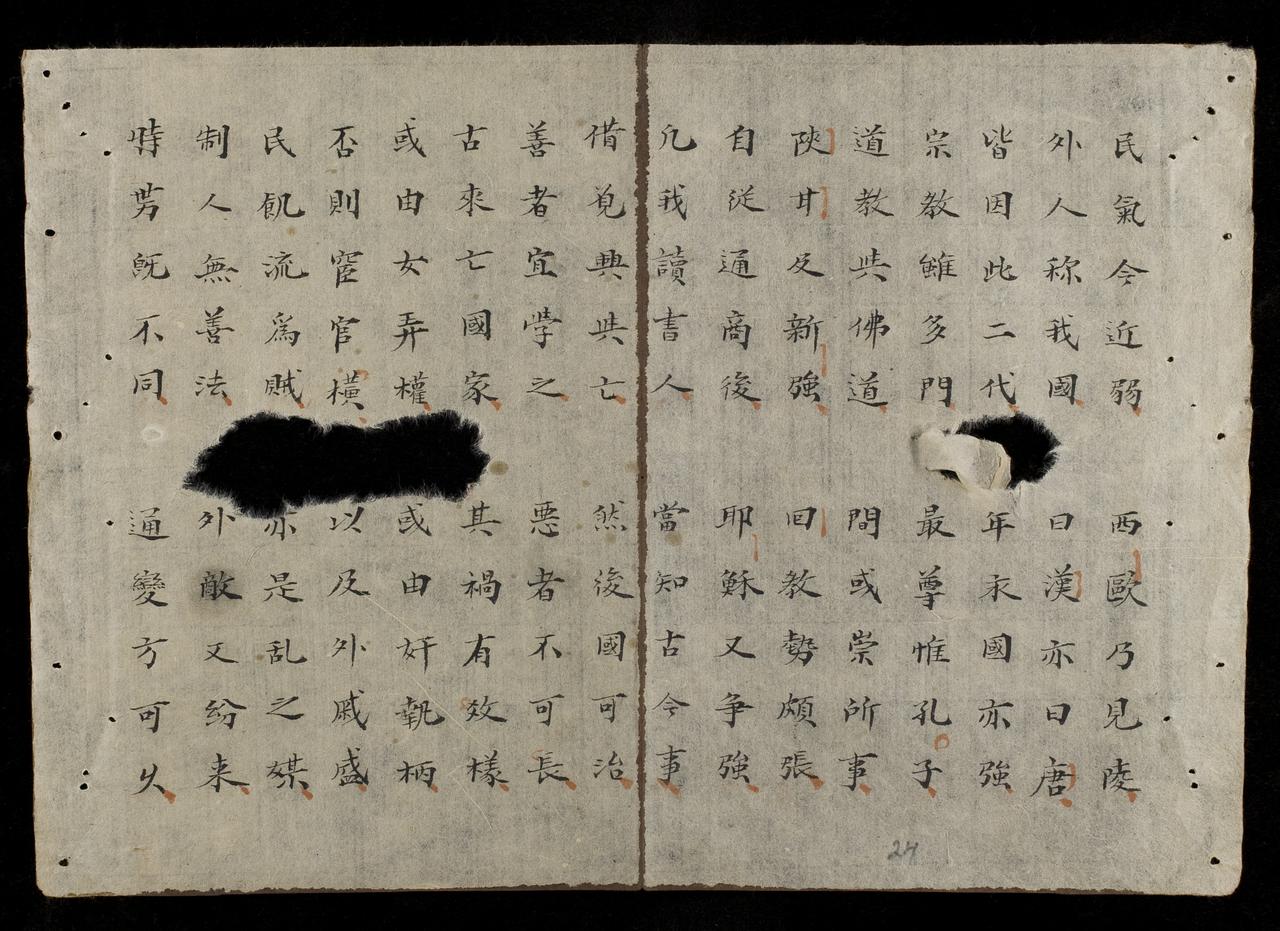 民氣今近弱 西歐乃見陵
外人称我國 曰漢亦曰唐
皆因此二代 年永國亦強
宗教雖多門 最尊惟孔子
道教共佛道 間或崇所事
陝甘及新強 回教勢頗張
自從通商後 耶穌又争強
凢我讀書人 當知古今事
借覓興共亡 然後國可治
善者宜學之 悪者不可長
古來亡國家 其禍有效樣
或由女弄權 或由奸執柄
否則宦官橫 以及外戚盛
民飢流爲賊 亦是乱之媒
制人無善法 外敵又紛来
時势既不同 通變方可久
24